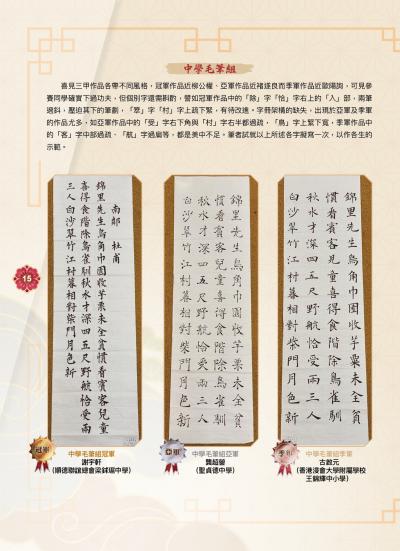 中學毛筆組
喜見三甲作品各帶不同風格,冠軍作品近柳公權、亞軍作品近褚遂良而季軍作品近歐陽詢,可見參
賽同學確實下過功夫,但個別字還需斟酌,譬如冠軍作品中的「除」字「恰」字右上的「人」部,兩筆
過斜,壓迫其下的筆劃,「翠」字「村」字上疏下緊,有待改進。字冊架構的缺失,出現於亞軍及季軍
的作品尤多,如亞軍作品中的「受」字右下角與「村」字右半都過疏,「鳥」字上緊下寬,季軍作品中
的「客」字中部過疏、「航」字過扁等,都是美中不足。筆者試就以上所述各字擬寫一次,以作各生的
示範。
南鄰 杜甫
錦里先生烏角巾園收芋粟未全貧慣看賓客兒童
喜得食階除鳥雀馴秋水才深四五尺野航恰受兩
三人白沙翠竹江村暮相對柴門月色新
錦里先生烏角巾園收芋粟未全貧
慣看賓客兒童喜得食階除鳥雀馴
秋水才深四五尺野航恰受兩三人
白沙翠竹江村暮相對柴門月色新
錦里先生烏角巾園收芋粟未全貧
慣看賓客兒童喜得食階除鳥雀馴
秋水才深四五尺野航恰受兩三人
白沙翠竹江村暮相對柴門月色新
15
冠軍
中學毛筆組冠軍
謝宇軒
(順德聯誼總會梁銶琚中學)
亞軍
中學毛筆組亞軍
龔超螢
(聖貞德中學)
季軍
中學毛筆組季軍
古啟元
(香港浸會大學附屬學校
王錦輝中小學)